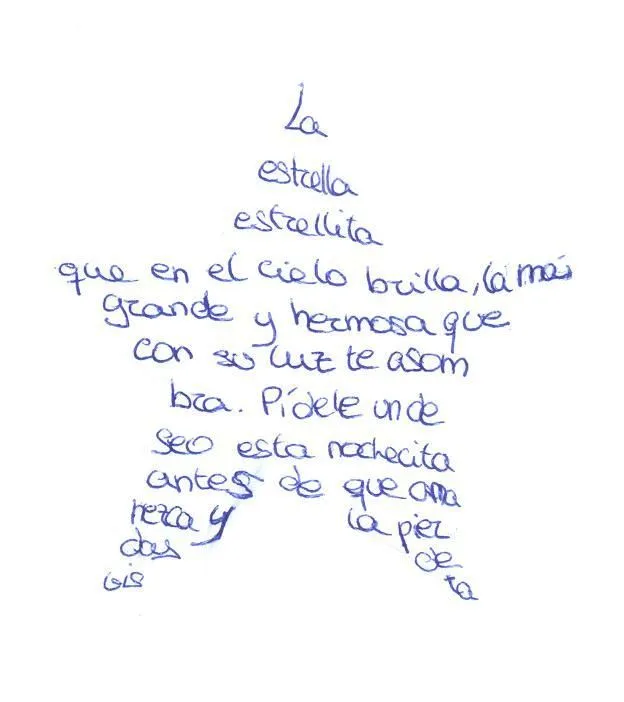 La
estrella
estrellita
que en el cielo brilla, la más
grande y hermosa que
con su luz te asom
bra. Pídele un de
seo esta nochecita
antes de que ama
nezca y la pier
das de
vis ta